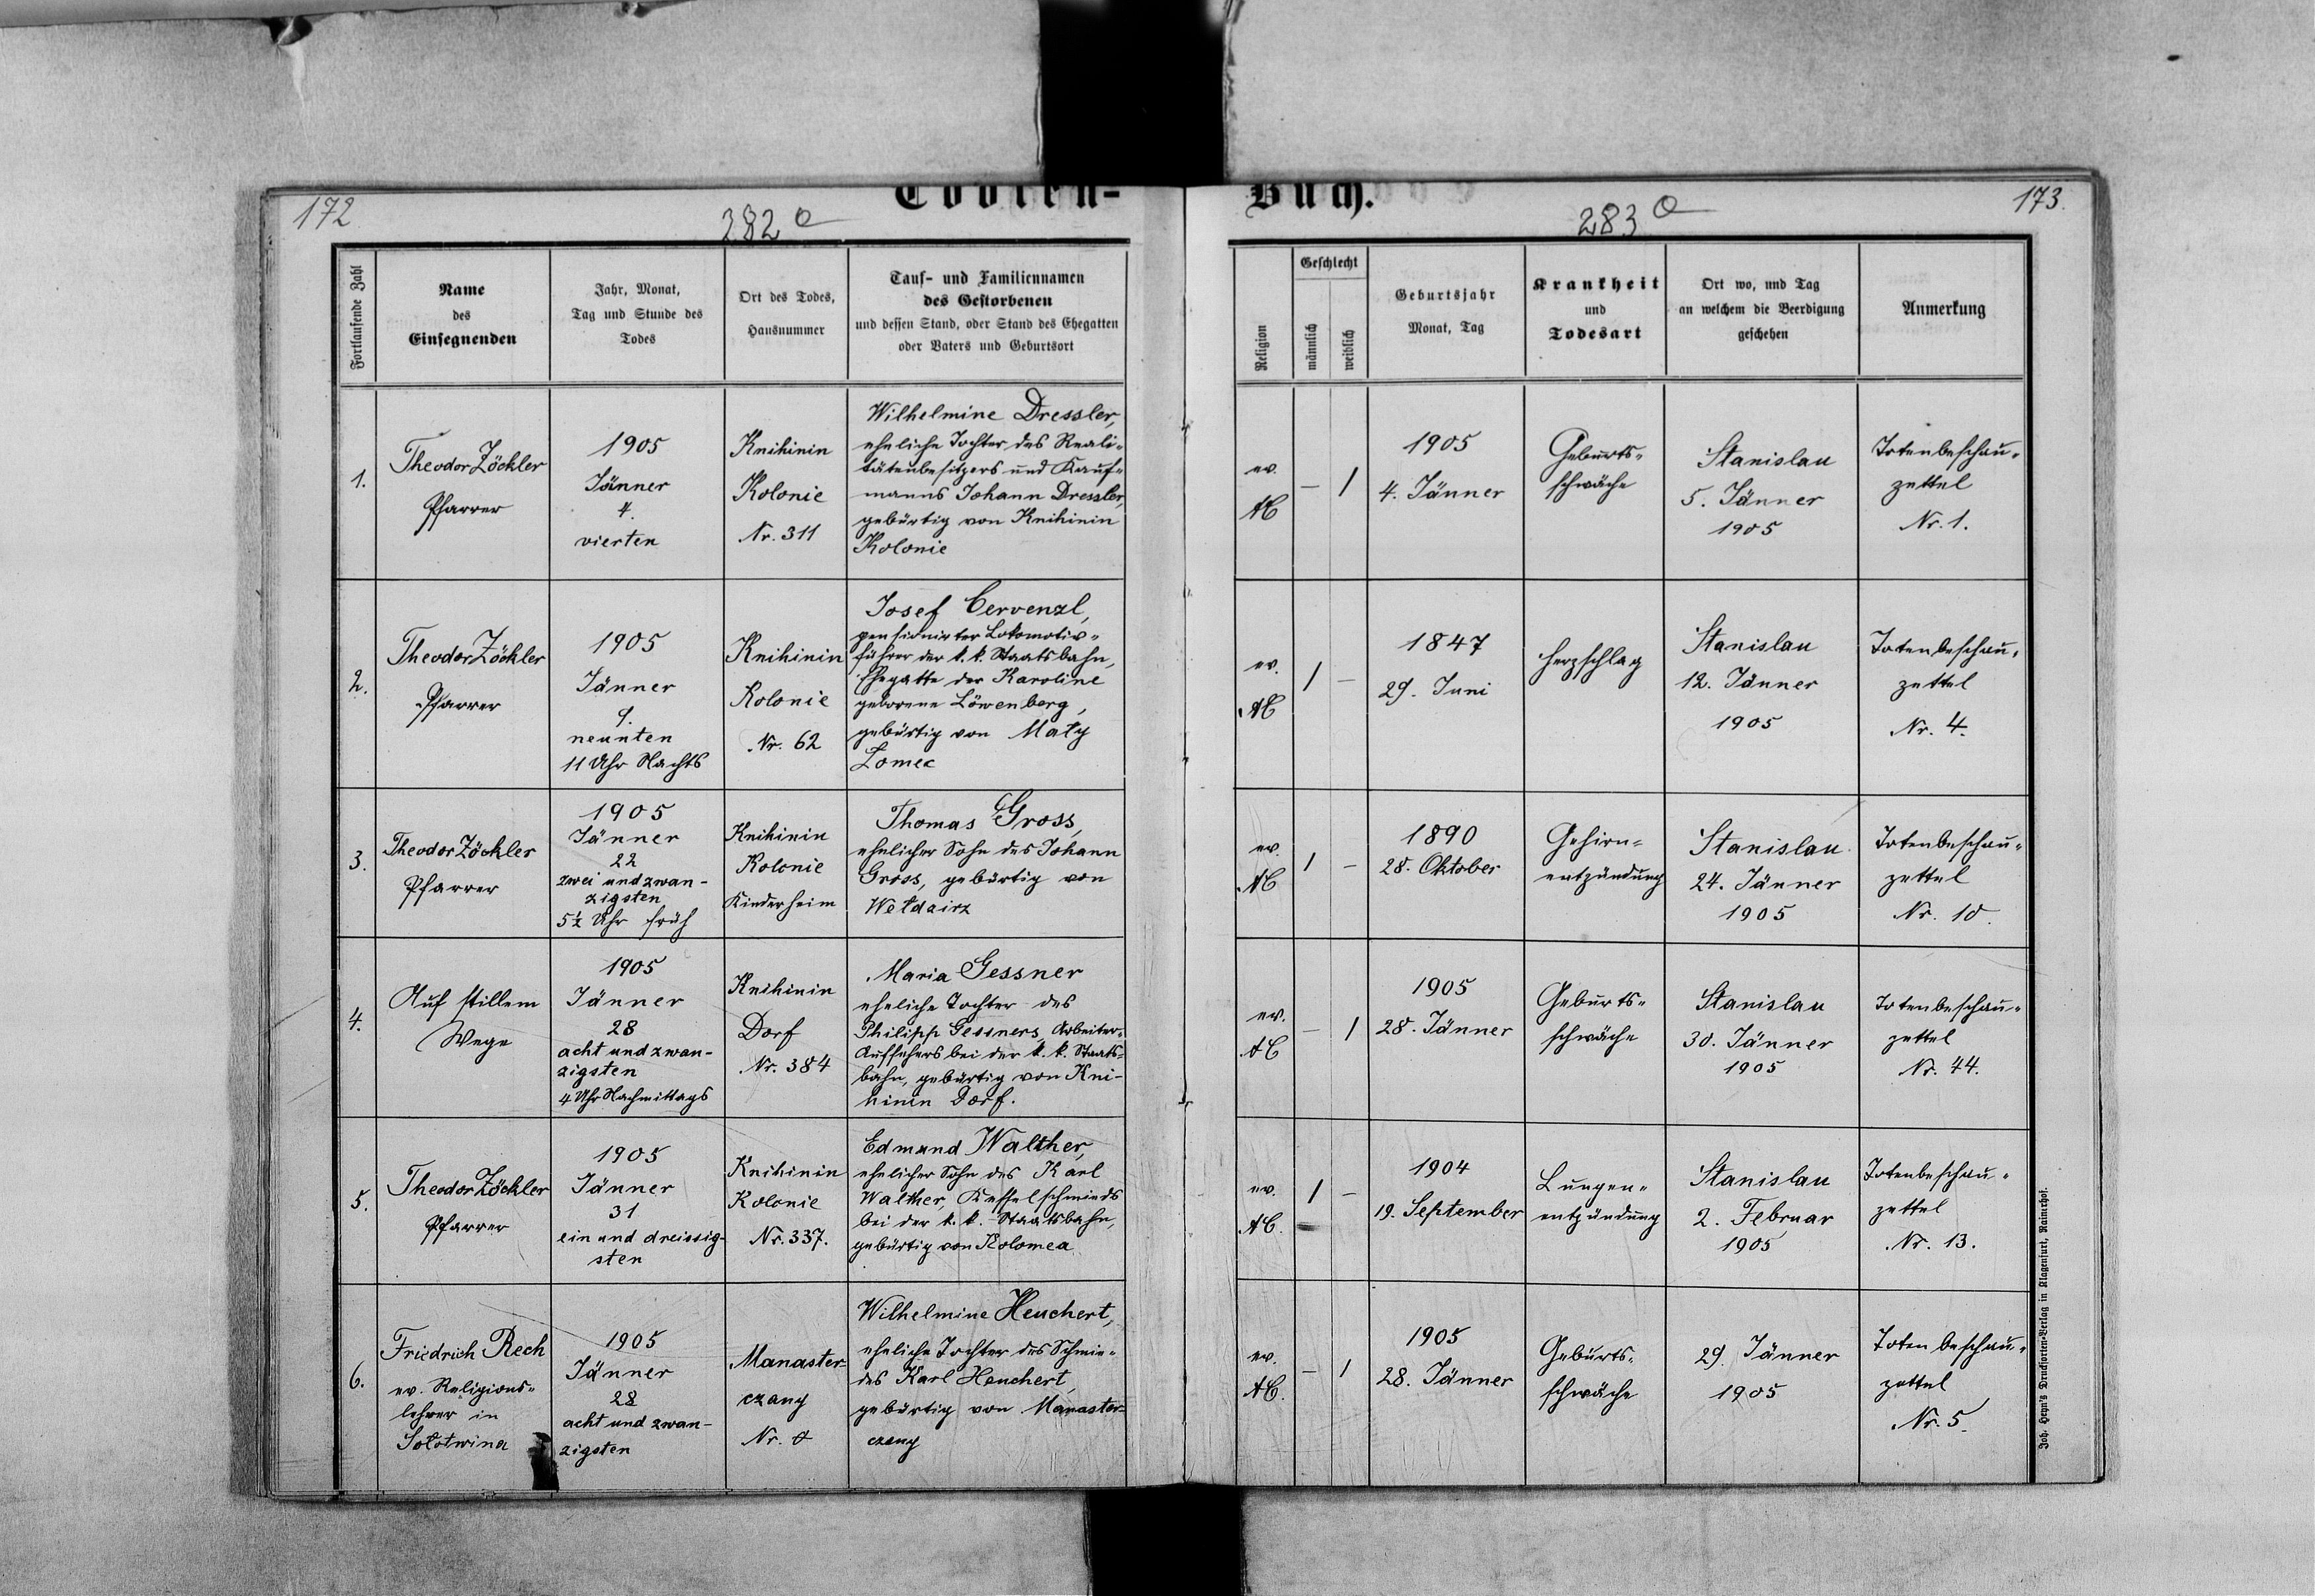 172
Todten-
282
Fortlaufende Zahl
Name
des
Einsegnenden
Jahr, Monat,
Tag und Stunde des
Todes
Ort des Todes,
Hausnummer
Tauf- und Familiennamen
des Gestorbenen
und dessen Stand, oder Stand des Ehegatten
oder Vaters und Geburtsort
1.
Theodor Zöckler
Pfarrer
1905
Jänner
4.
vierten
Knihinin
Kolonie
Nr. 311
Wilhelmine Dressler,
eheliche Tochter des Reali-
tätenbesitzers und Kauf-
manns Johann Dressler,
gebürtig von Knihinin
Kolonie
2.
Theodor Zöckler
Pfarrer
1905
Jänner
9.
neunten
11 Uhr Nachts
Knihinin
Kolonie
Nr. 62
Josef Cervenzl,
pensionirter Lokomotiv-
führer der k. k. Staatsbahn,
Ehegatte der Karoline
geborene Löwenberg,
gebürtig von Mały
Lomec
3.
Theodor Zöckler
Pfarrer
1905
Jänner
22
zwei und zwan-
zigsten
5½ Uhr früh
Knihinin
Kolonie
Kinderheim
Thomas Gross,
ehelicher Sohn des Johann
Gross, gebürtig von
Wełdzirz
4.
Auf stillem
Wege
1905
Jänner
28
acht und zwan-
zigsten
4 Uhr Nachmittags
Knihinin
Dorf
Nr. 384
Maria Gessner
eheliche Tochter des
Philipp Gessners, Arbeiter-
Aufsehers bei der k. k. Staats-
bahn, gebürtig von Kni-
hinin Dorf.
5.
Theodor Zöckler
Pfarrer
1905
Jänner
31
ein und dreissig-
sten
Knihinin
Kolonie
Nr. 337.
Edmund Walther,
ehelicher Sohn des Karl
Walther, Kesselschmieds
bei der k. k. Staatsbahn,
gebürtig von Kolomea
6.
Friedrich Rech
ev. Religions-
lehrer in
Sołotwina
1905
Jänner
28
acht und zwan-
zigsten
Manaster-
czany
Nr.
Wilhelmine Heuchert,
eheliche Tochter des Schmie-
des Karl Heuchert,
gebürtig von Manaster-
czany
173.
Buch.
283
Religion
Geschlecht
männlich
weiblich
Geburtsjahr
Monat, Tag
Krankheit
und
Todesart
Ort wo, und Tag
an welchem die Beerdigung
geschehen
Anmerkung
ev.
AC
–
1
1905
4. Jänner
Geburts-
schwäche
Stanislau
5. Jänner
1905
Totenbeschau-
zettel
Nr. 1.
ev.
AC
1
–
1847
29. Juni
Herzschlag
Stanislau
12. Jänner
1905
Totenbeschau-
zettel
Nr. 4.
ev.
AC
1
–
1890
28. Oktober
Gehirn-
entzündung
Stanislau
24. Jänner
1905
Totenbeschau-
zettel
Nr. 10.
ev.
AC
–
1
1905
28. Jänner
Geburts-
schwäche
Stanislau
30. Jänner
1905
Totenbeschau-
zettel
Nr. 44.
ev.
AC.
1
–
1904
19. September
Lungen-
entzündung
Stanislau
2. Februar
1905
Totenbeschau-
zettel
Nr. 13.
ev.
AC.
–
1
1905
28. Jänner
Geburts-
schwäche
29. Jänner
1905
Totenbeschau-
zettel
Nr. 5.
Joh. Heyn's Drucksorten-Verlag in Klagenfurt, Rainerhof.